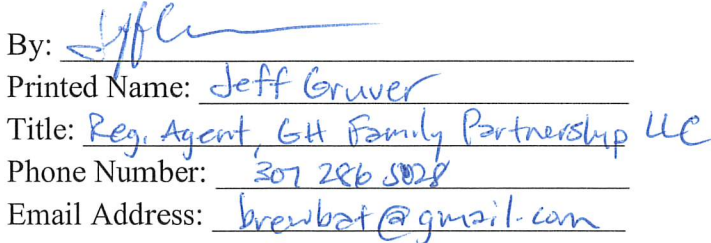 By:
Printed Name: Jeff Gruver
Title: Reg. Agent, GH Family Partnership LLC
Phone Number: 307 286 5028
Email Address: brewbat@gmail.com